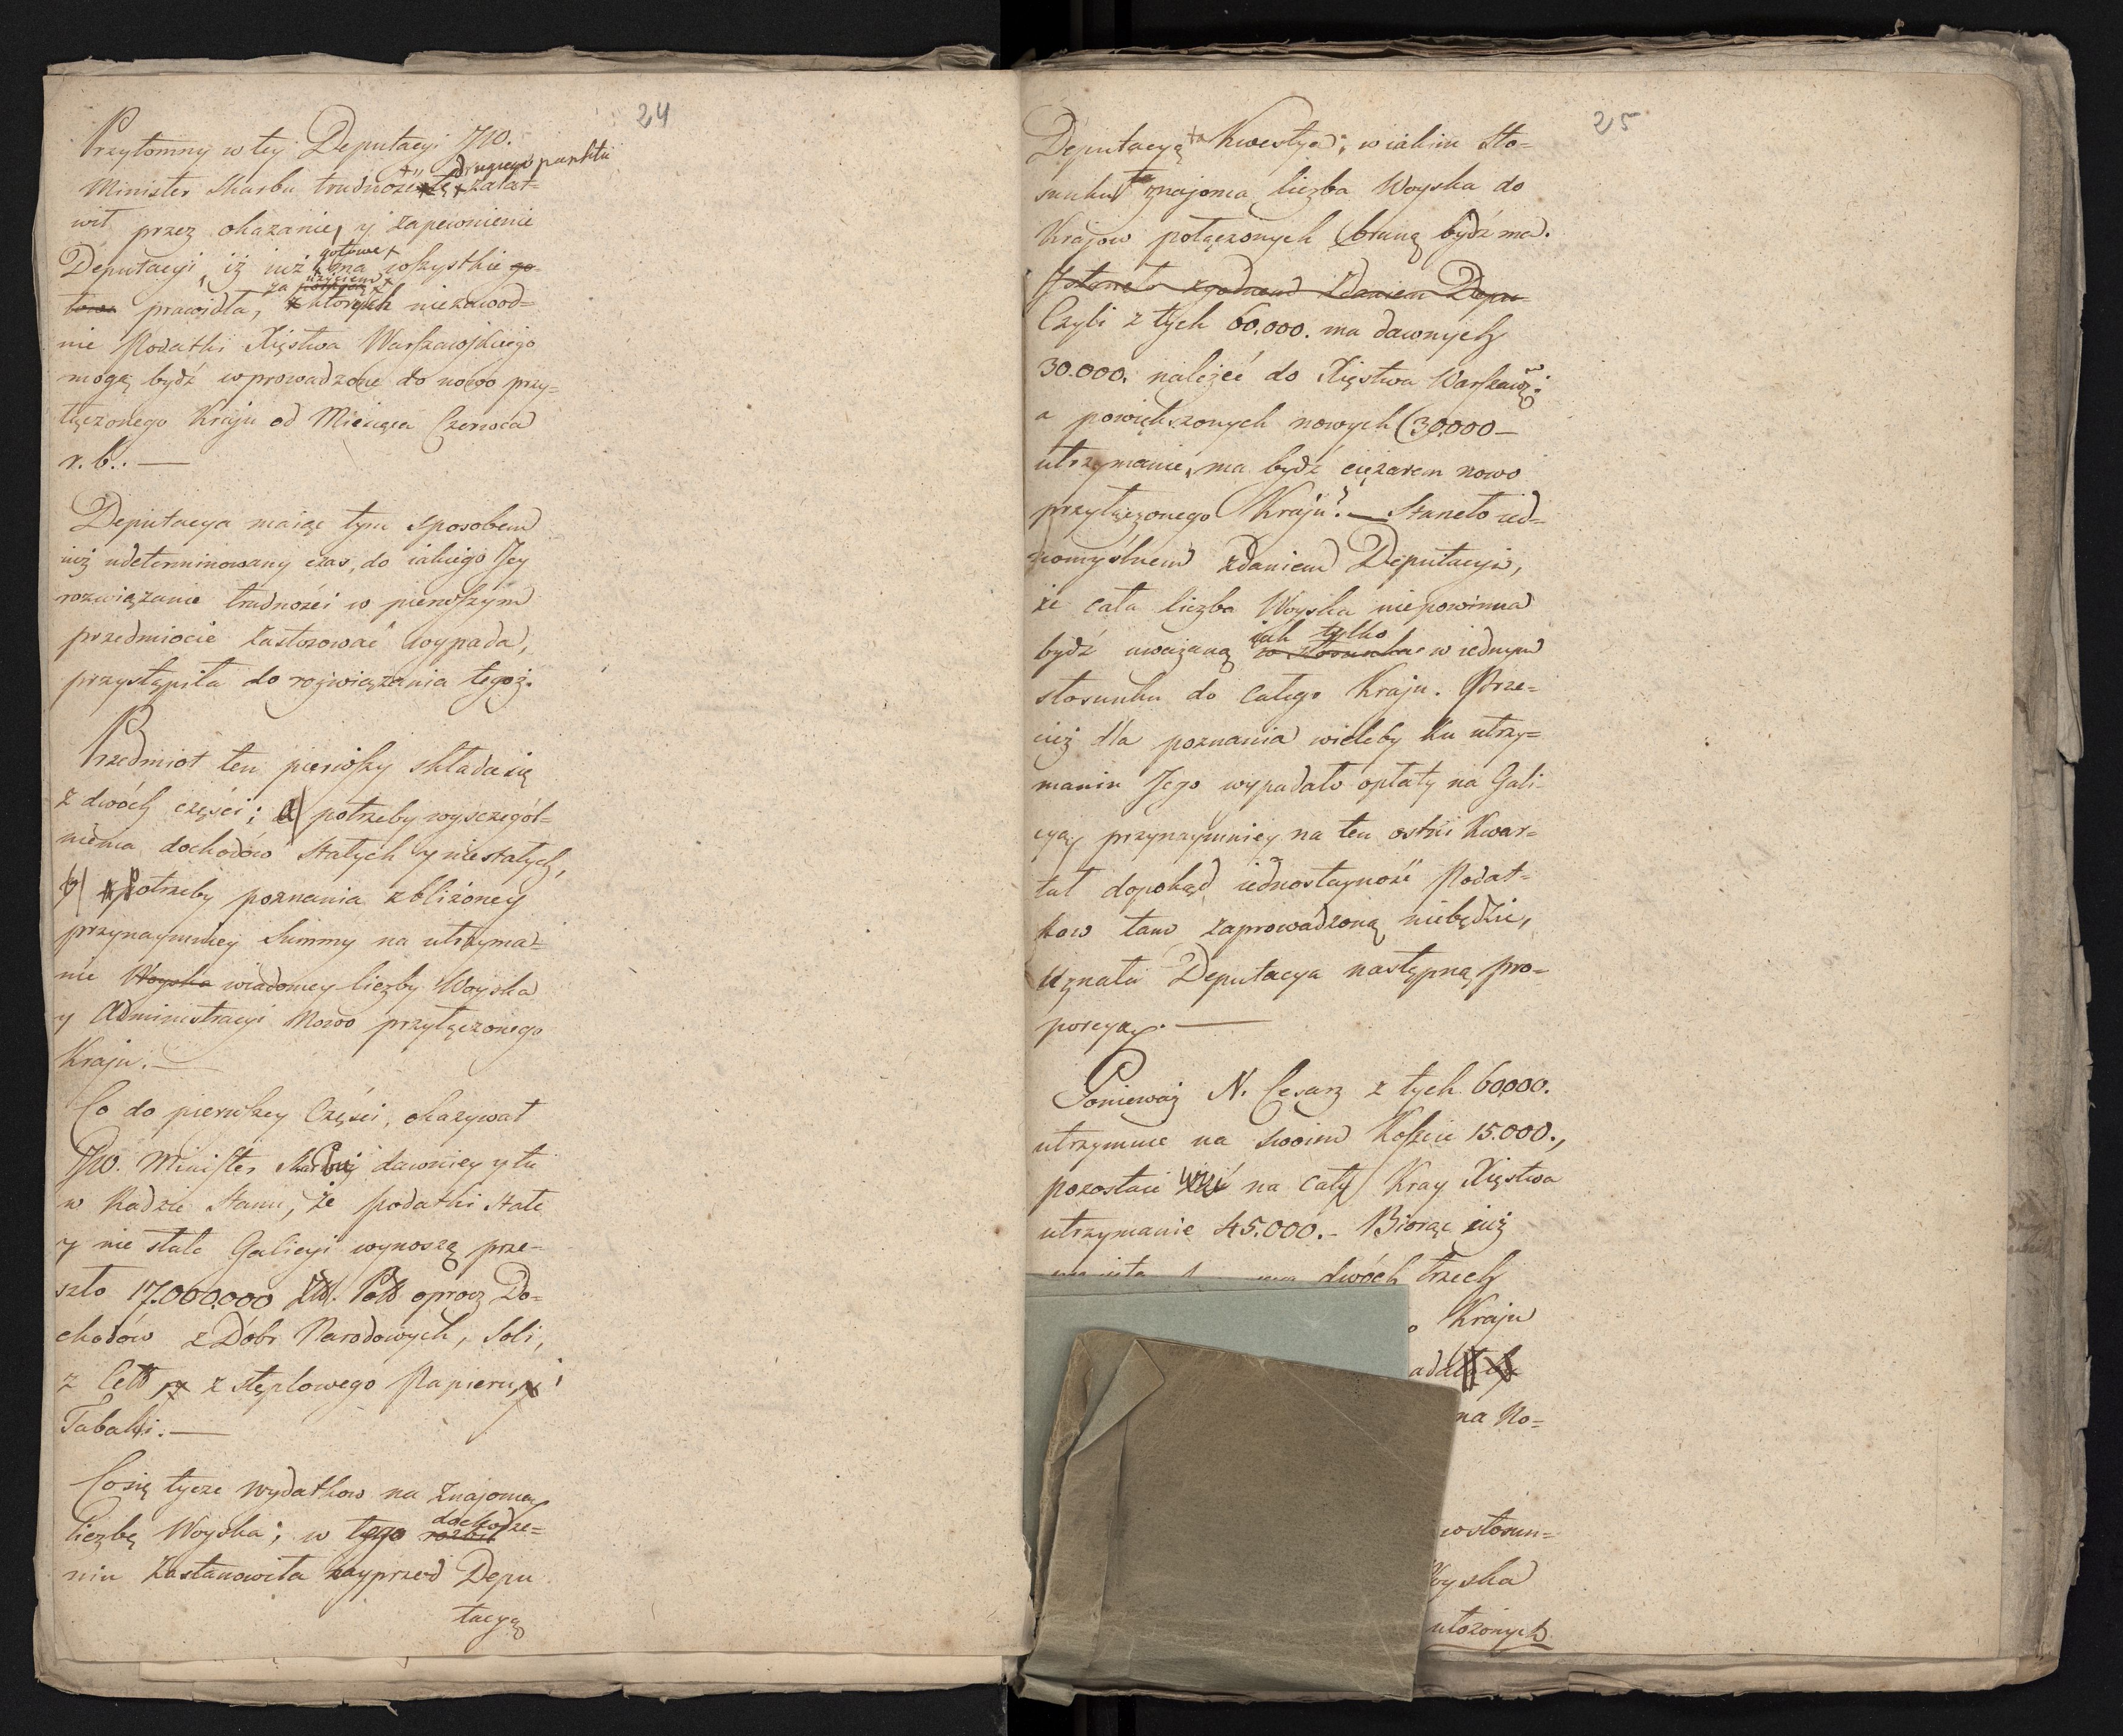 24
Przytomny w tey Deputacyi JW.
drugiego punktu
Minister Skarbu trudność tę załat=
wił przez okazanie, y zapewnienie
gotowe
Deputacyi, iż iuż ma wszystkie go-
za użyciem
towe prawidła, z których niezawod=
nie Podatki Xięstwa Warszawskiego
mogą bydź wprowadzone do nowo przy=
łączonego Kraju od Miesiąca Czerwca
r. b. —
Deputacya maiąc tym sposobem
iuż udeterminowany czas, do iakiego Jey
rozwiązanie trudności w pierwszym
przedmiocie zastosować wypada,
przystąpiła do rozwiązania tegoż.
Przedmiot ten pierwszy składa się
z dwóch części; a) potrzeby wyszczegól=
nienia dochodów stałych y niestałych,
b) potrzeby poznania zbliżoney
przynaymniey Summy na utrzyma=
nie Woyska wiadomey liczby Woyska
y Administracyi Nowo przyłączonego
Kraju. —
Co do pierwszey Części, okazywał
JW. Minister Skarbu dawniey y tu
w Radzie Stanu, że podatki stałe
y nie stałe Galicyi wynoszą prze=
szło 17.000.000 Złł. Poll oprocz Do=
chodów z Dóbr Narodowych, Soli,
z Cell z stęplowego Papieru, i
Tabaki. —
Co się tycze wydatkow na Znajomą
dochodze=
liczbę Woyska; w tego rozbio
niu Zastanowiła nayprzed Depu
tacyą
25
Deputacyą ta Kwestya; w iakim Sto=
sunku ta znajoma liczba Woyska do
Krajow połączonych braną bydź ma.
Stanęło zgodnem Zdaniem Depu-
Czyli z tych 60.000. ma dawnych
30.000. należeć do Xięstwa Warszaw:
a powiększonych nowych 30.000—
utrzymanie, ma bydź ciężarem nowo
przyłączonego Kraju? — Stanęło ied=
nomyślnem zdaniem Deputacyi,
że cała liczba Woyska niepowinna
iak tylko
bydź uważaną w stosunku w iednym
stosunku do całego Kraju. Prze=
cież dla poznania wieleby ku utrzy=
maniu Jego wypadało opłaty na Gali-
cyą przynaymniey na ten ostni Kwar=
tał dopokąd iednostayność Podat=
kow tam zaprowadzoną niebędzie,
Uznała Deputacya następną pro=
porcyą. —
Ponieważ N. Cesarz z tych 60.000.
utrzymuie na swoim Koszcie 15.000.,
pozostaie na cały Kray Xięstwa
utrzymanie 45.000. - Biorąc iuż
dwóch trzech
o Kraju
na Ro=
w stosun=
Woyska
ułożonych